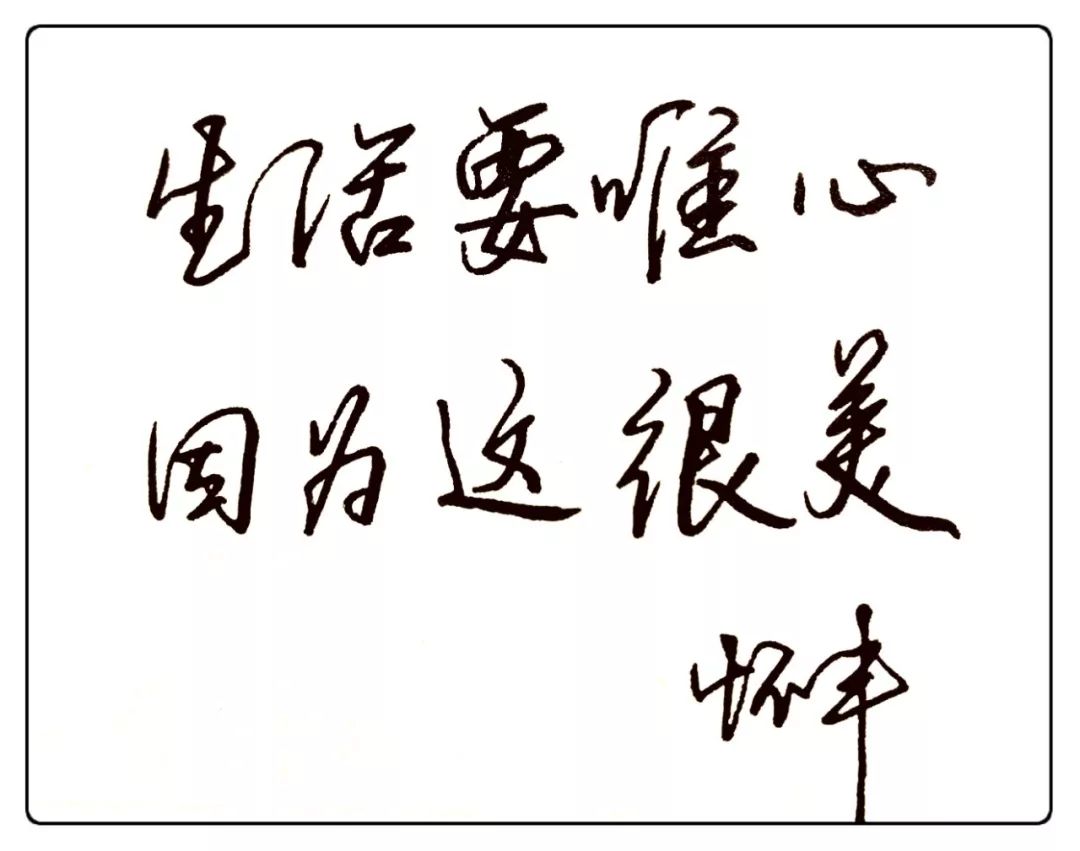 生活要唯心
因为这很美
怀丰